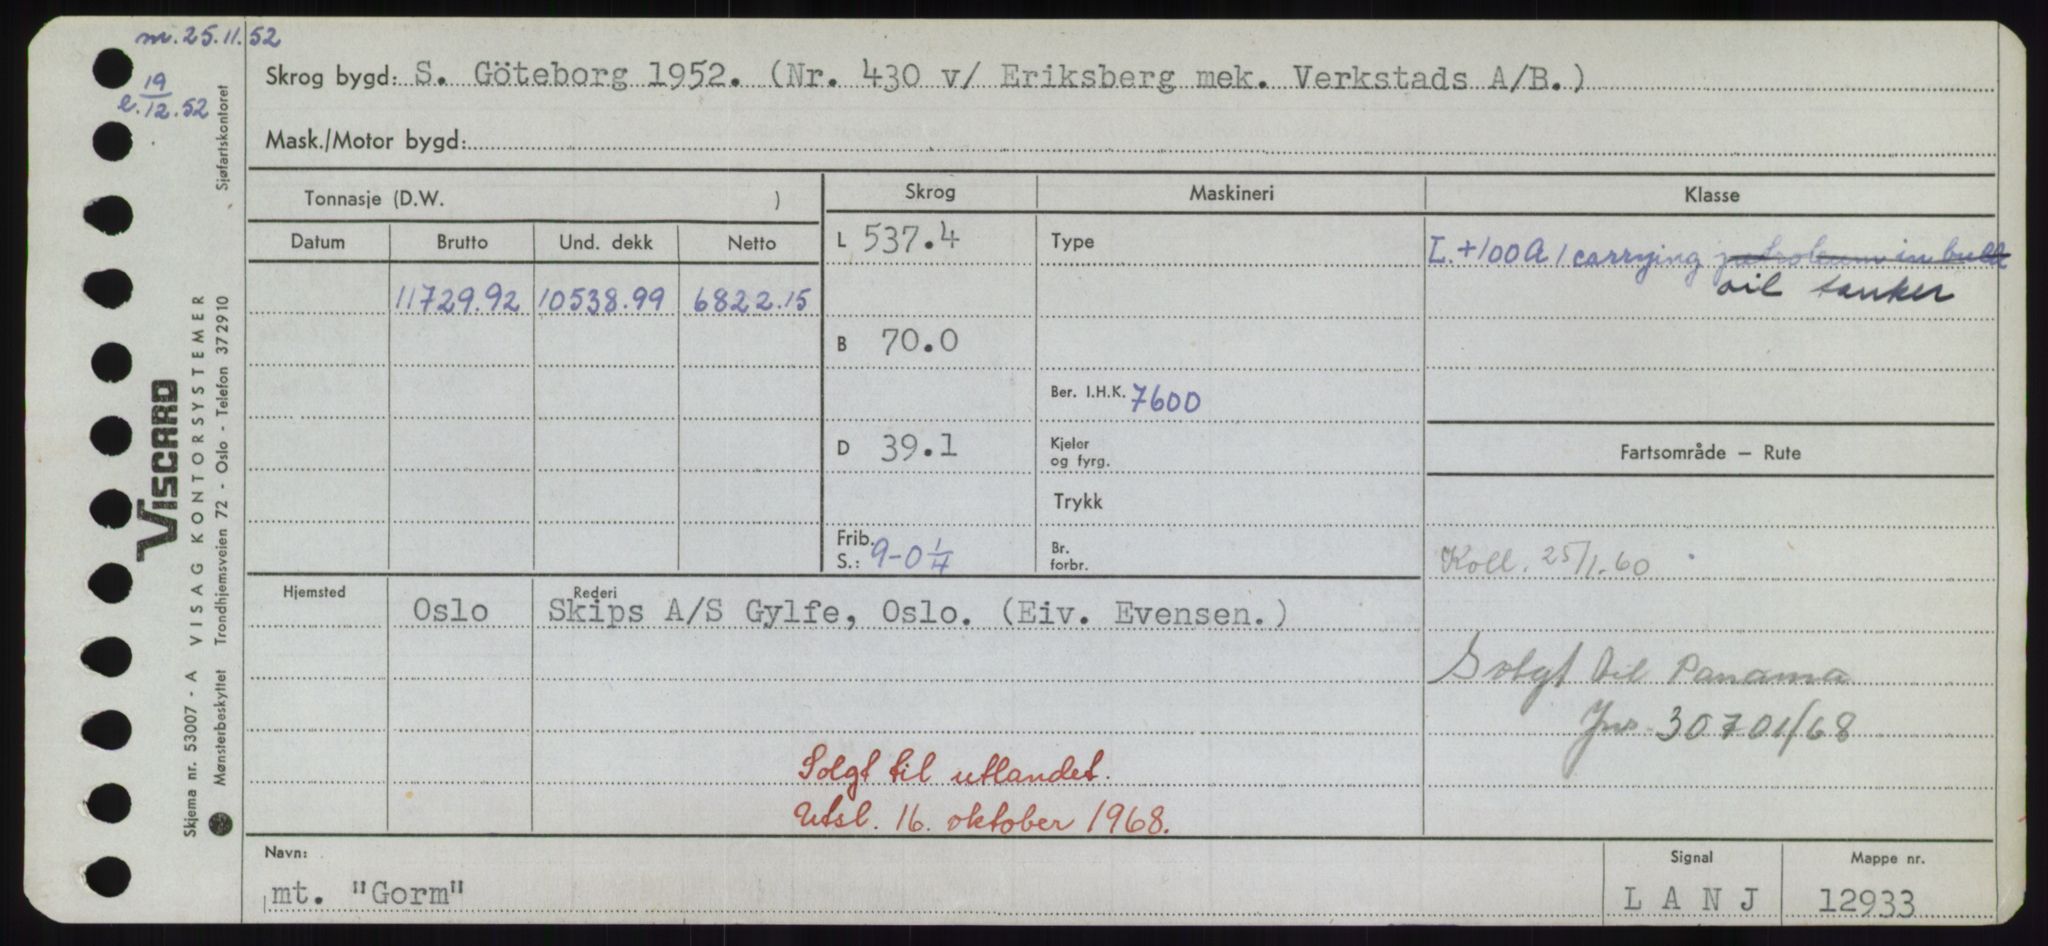 m. 25.11.52
e. 19/12.52
Sjøfartskontoret
Skrog bygd: S. Göteborg 1952. (Nr. 430 v/ Eriksberg mek. Verkstads A/B.)
Mask./Motor bygd:
Tonnasje (D.W. )
Skrog
Maskineri
Klasse
Datum Brutto Und. dekk Netto
L 537.4
Type
L. +100A1 carrying petroleum in bulk
oil tanker
11729.92 10538.99 6822.15
B 70.0
Ber. I.H.K. 7600
D 39.1
Kjeler
og fyrg.
Fartsområde – Rute
Trykk
Frib.
S.: 9-0 1/4
Br.
forbr.
Koll. 25/1.60
Hjemsted
Oslo
Rederi
Skips A/S Gylfe, Oslo. (Eiv. Evensen.)
Solgt til Panama
Jnr 30701/68
Solgt til utlandet.
Utsl. 16. oktober 1968.
Navn:
mt. "Gorm"
Signal
L A N J
Mappe nr.
12933
VISCARD
Skjema nr. 53007 - A VISAG KONTORSYSTEMER
Mønsterbeskyttet Trondhjemsveien 72 - Oslo - Telefon 372910